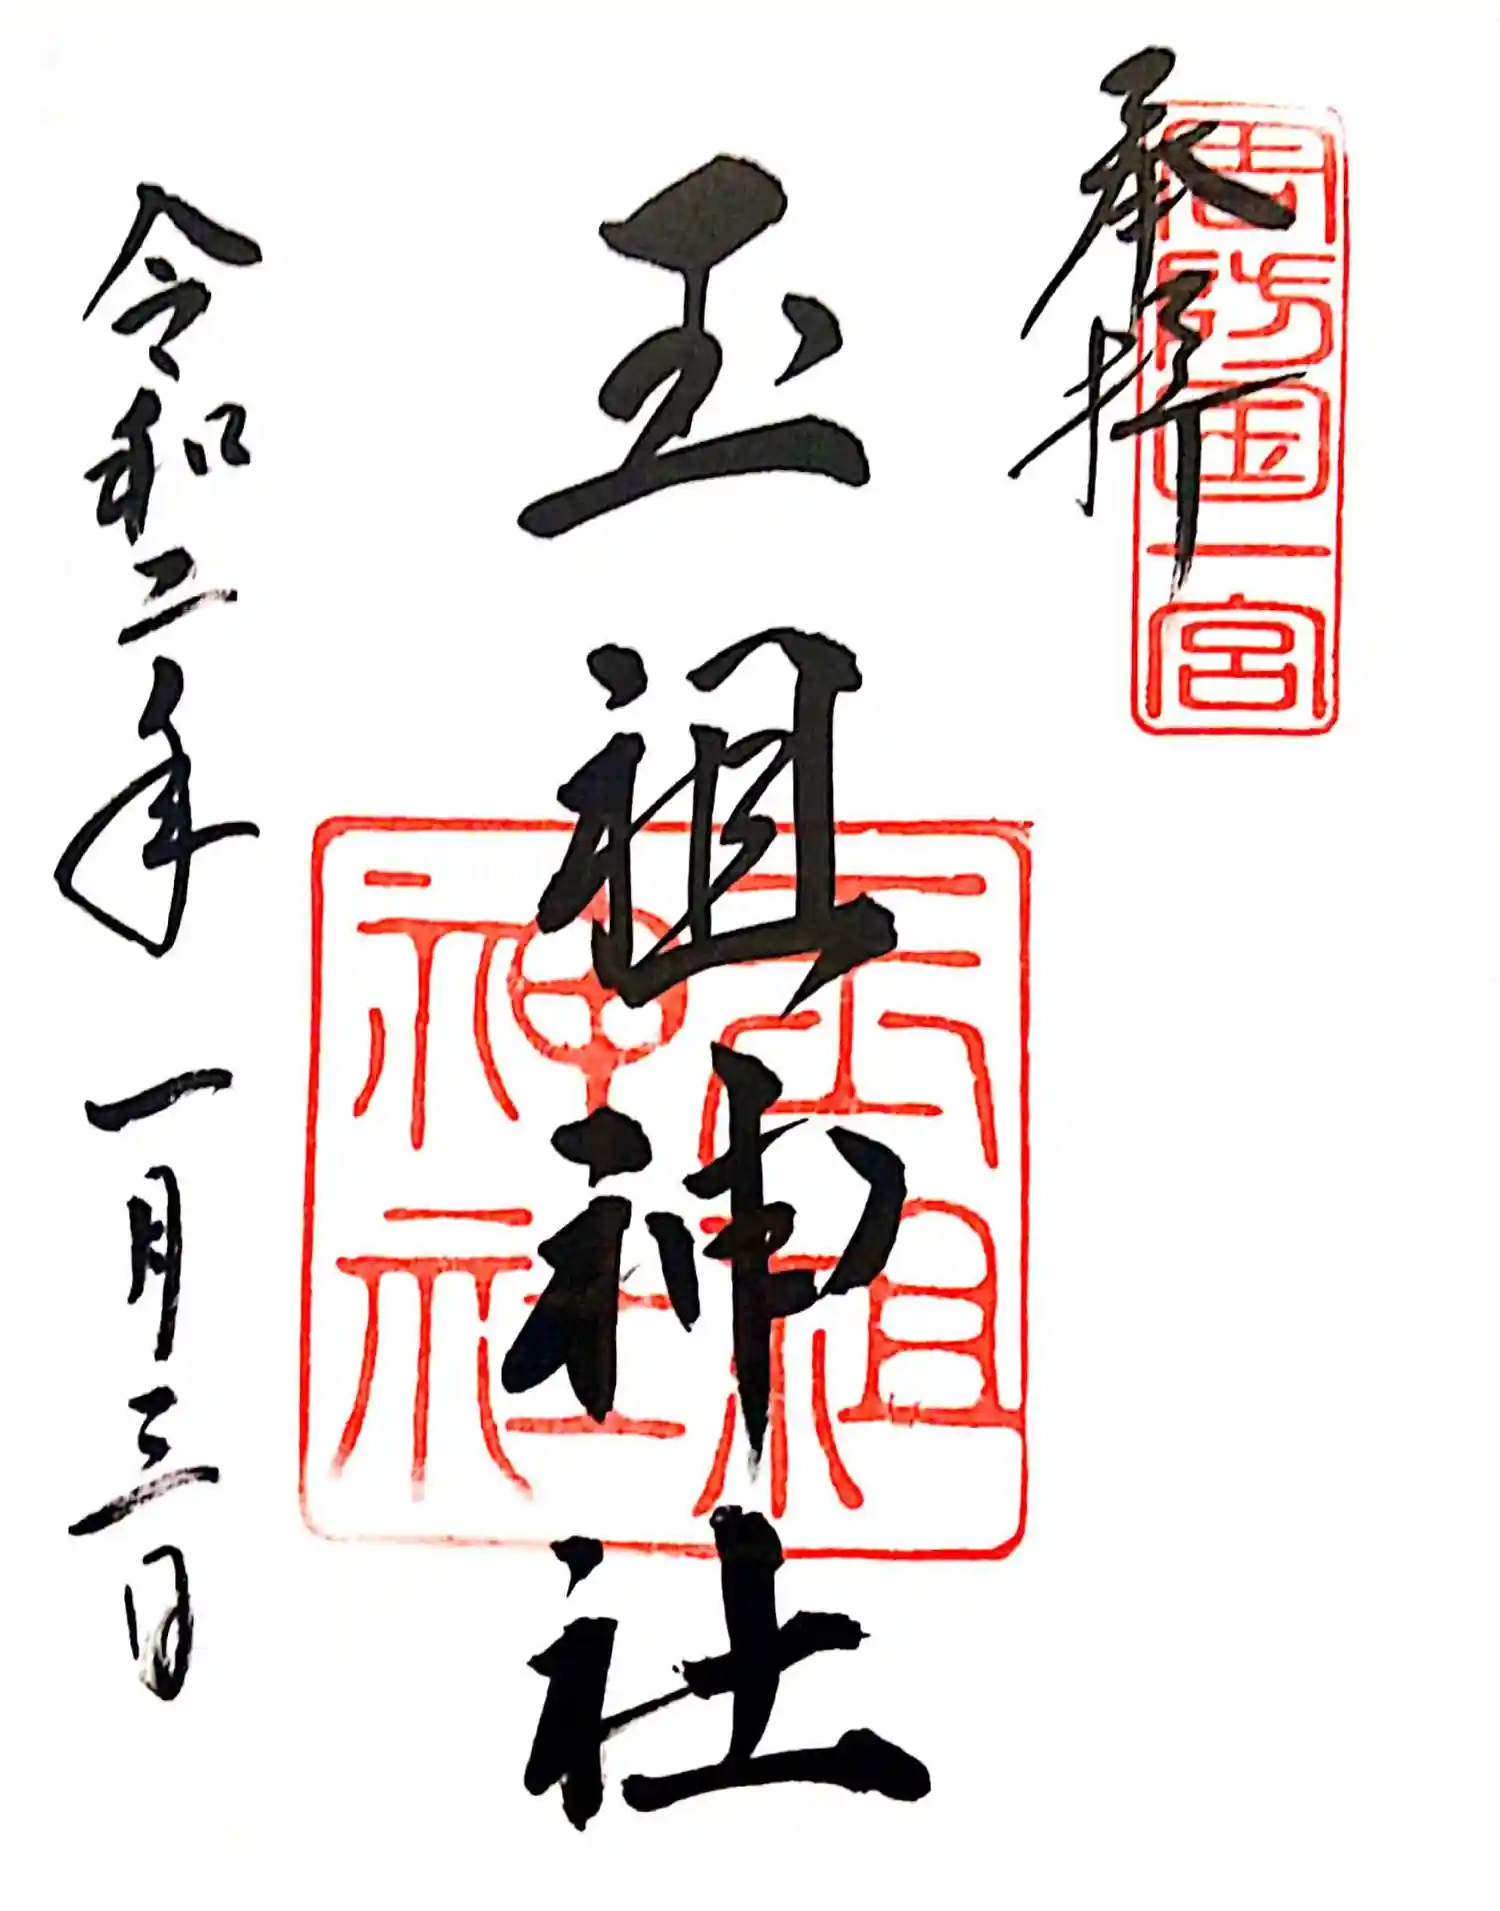 奉拝
周防国一宮
玉祖神社
玉祖神社
令和二年一月三日